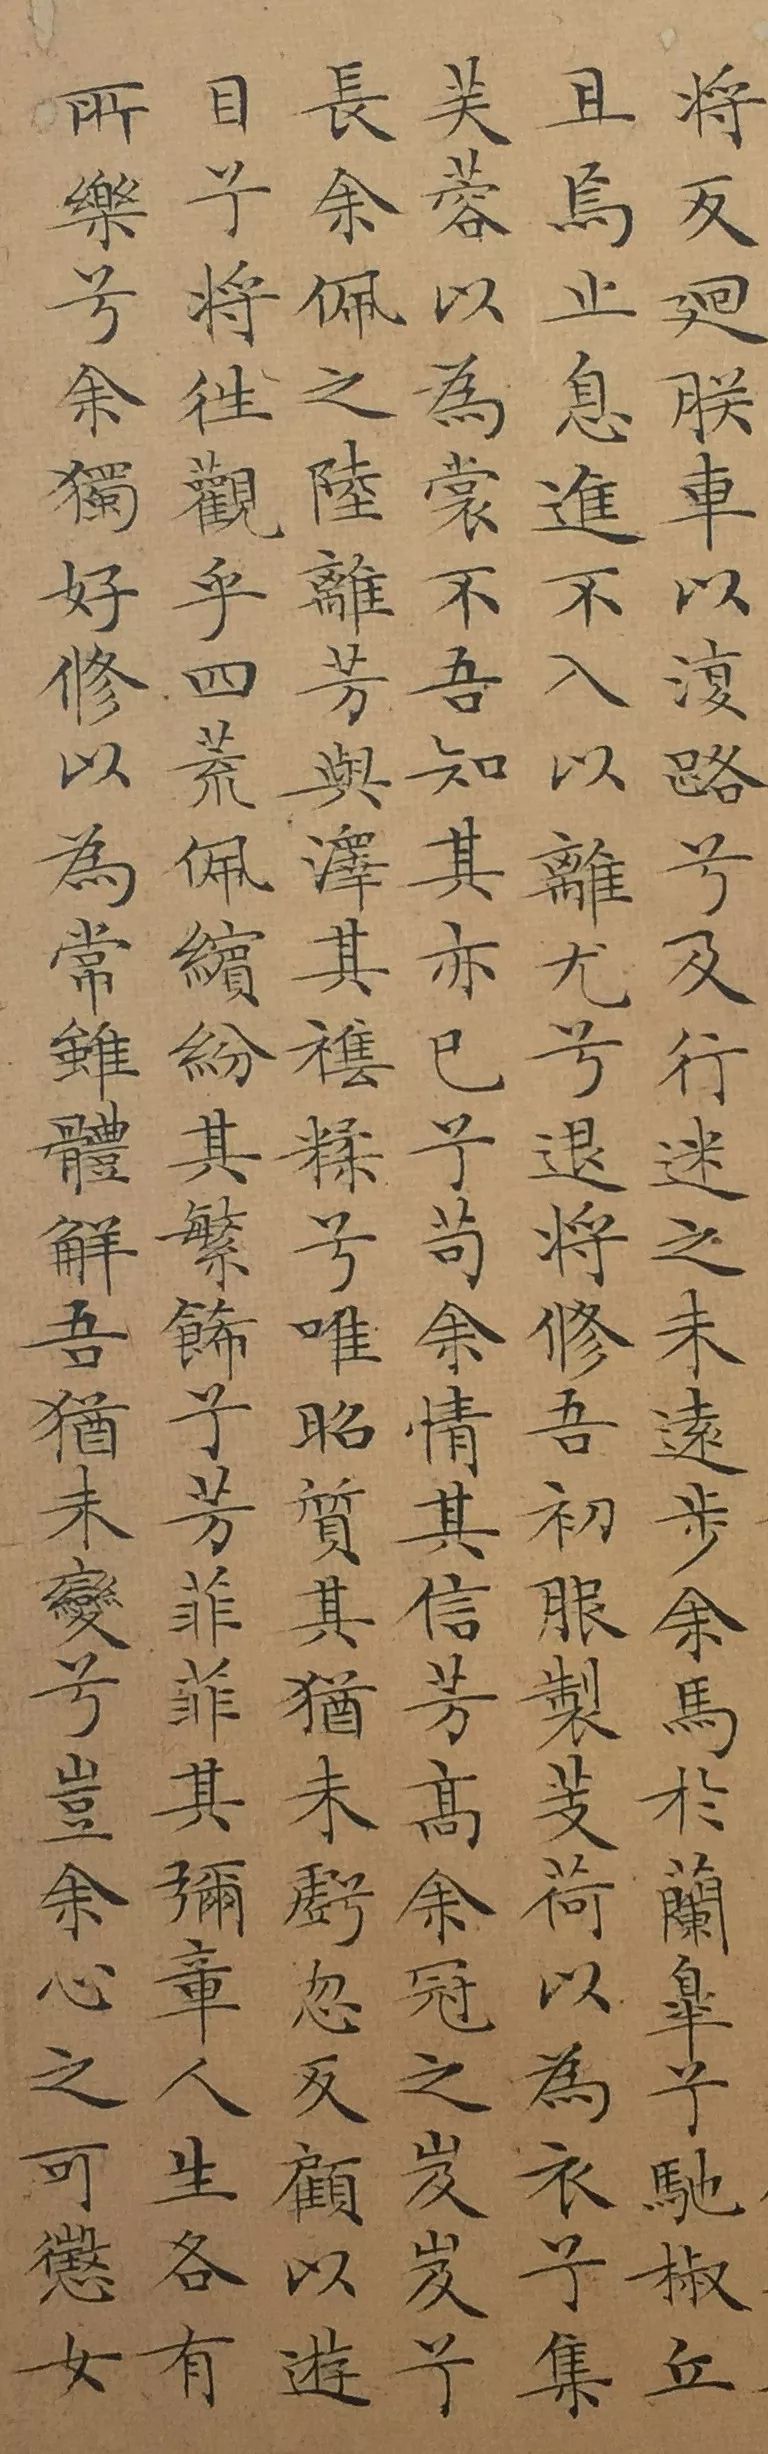 将反廻朕車以復路兮及行迷之未遠步余馬於蘭皐兮馳椒丘
且焉止息進不入以離尤兮退将修吾初服製芰荷以為衣兮集
芙蓉以為裳不吾知其亦已兮苟余情其信芳髙余冠之岌岌兮
長余佩之陸離芳與澤其襍糅兮唯昭質其猶未虧忽反顧以遊
目兮将徃觀乎四荒佩繽紛其繁飾兮芳菲菲其彌章人生各有
所樂兮余獨好修以為常雖體解吾猶未變兮豈余心之可懲女